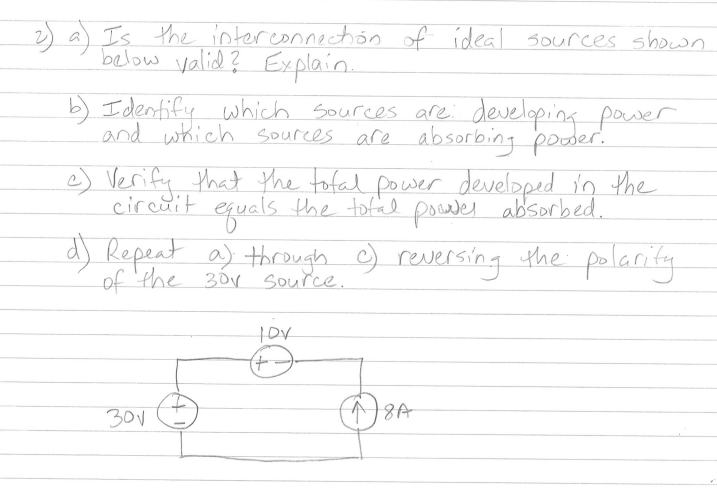 2) a) Is the interconnection of ideal sources shown
below valid? Explain.
b) Identify which sources are developing power
and which sources are absorbing power.
c) Verify that the total power developed in the
circuit equals the total power absorbed.
d) Repeat a) through c) reversing the polarity
of the 30V source.
10V
+ -
30V
+
-
↑
8A